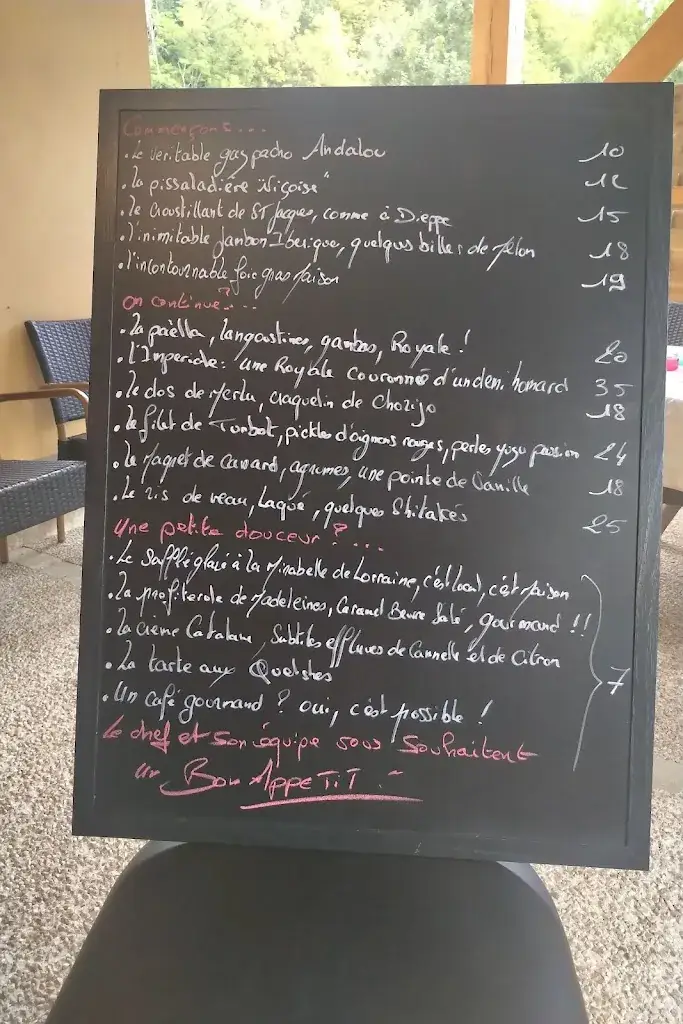 Commençons...
.Le veritable gaspacho Andalou 10
.La pissaladière Niçoise" 12
.Le croustillant de ST Jacques, comme à Dieppe 15
.L'inimitable Jambon Iberique, quelques billes de Melon 18
.L'incontournable foie gras Maison 19
On continue?...
.La paëlla, langoustines, gambas, Royale! 20
.L'Imperiale: une Royale couronné d'un demi homard 35
.Le dos de Merlu, craquelin de Chorizo 18
.Le filet de Turbot, pickles d'oignons rouges, perles yuzu passion 24
.Le Magret de Canard, agrumes, une pointe de Vanille 18
.Le ris de veau, Laqué, quelques Shitakés 25
Une petite douceur?...
.Le Soufflé glacé à la Mirabelle de Lorraine, c'est local, c'est Maison
.La profiterole de Madeleines, Caramel Beurre Salé, gourmand!!
.La crème Catalane, Subtiles effluves de Cannelle et de Citron
.La tarte aux Quetshes 7
.Un café gourmand? oui, c'est possible!
Le chef et son équipe vous Souhaitent
un Bon APPeTiT!